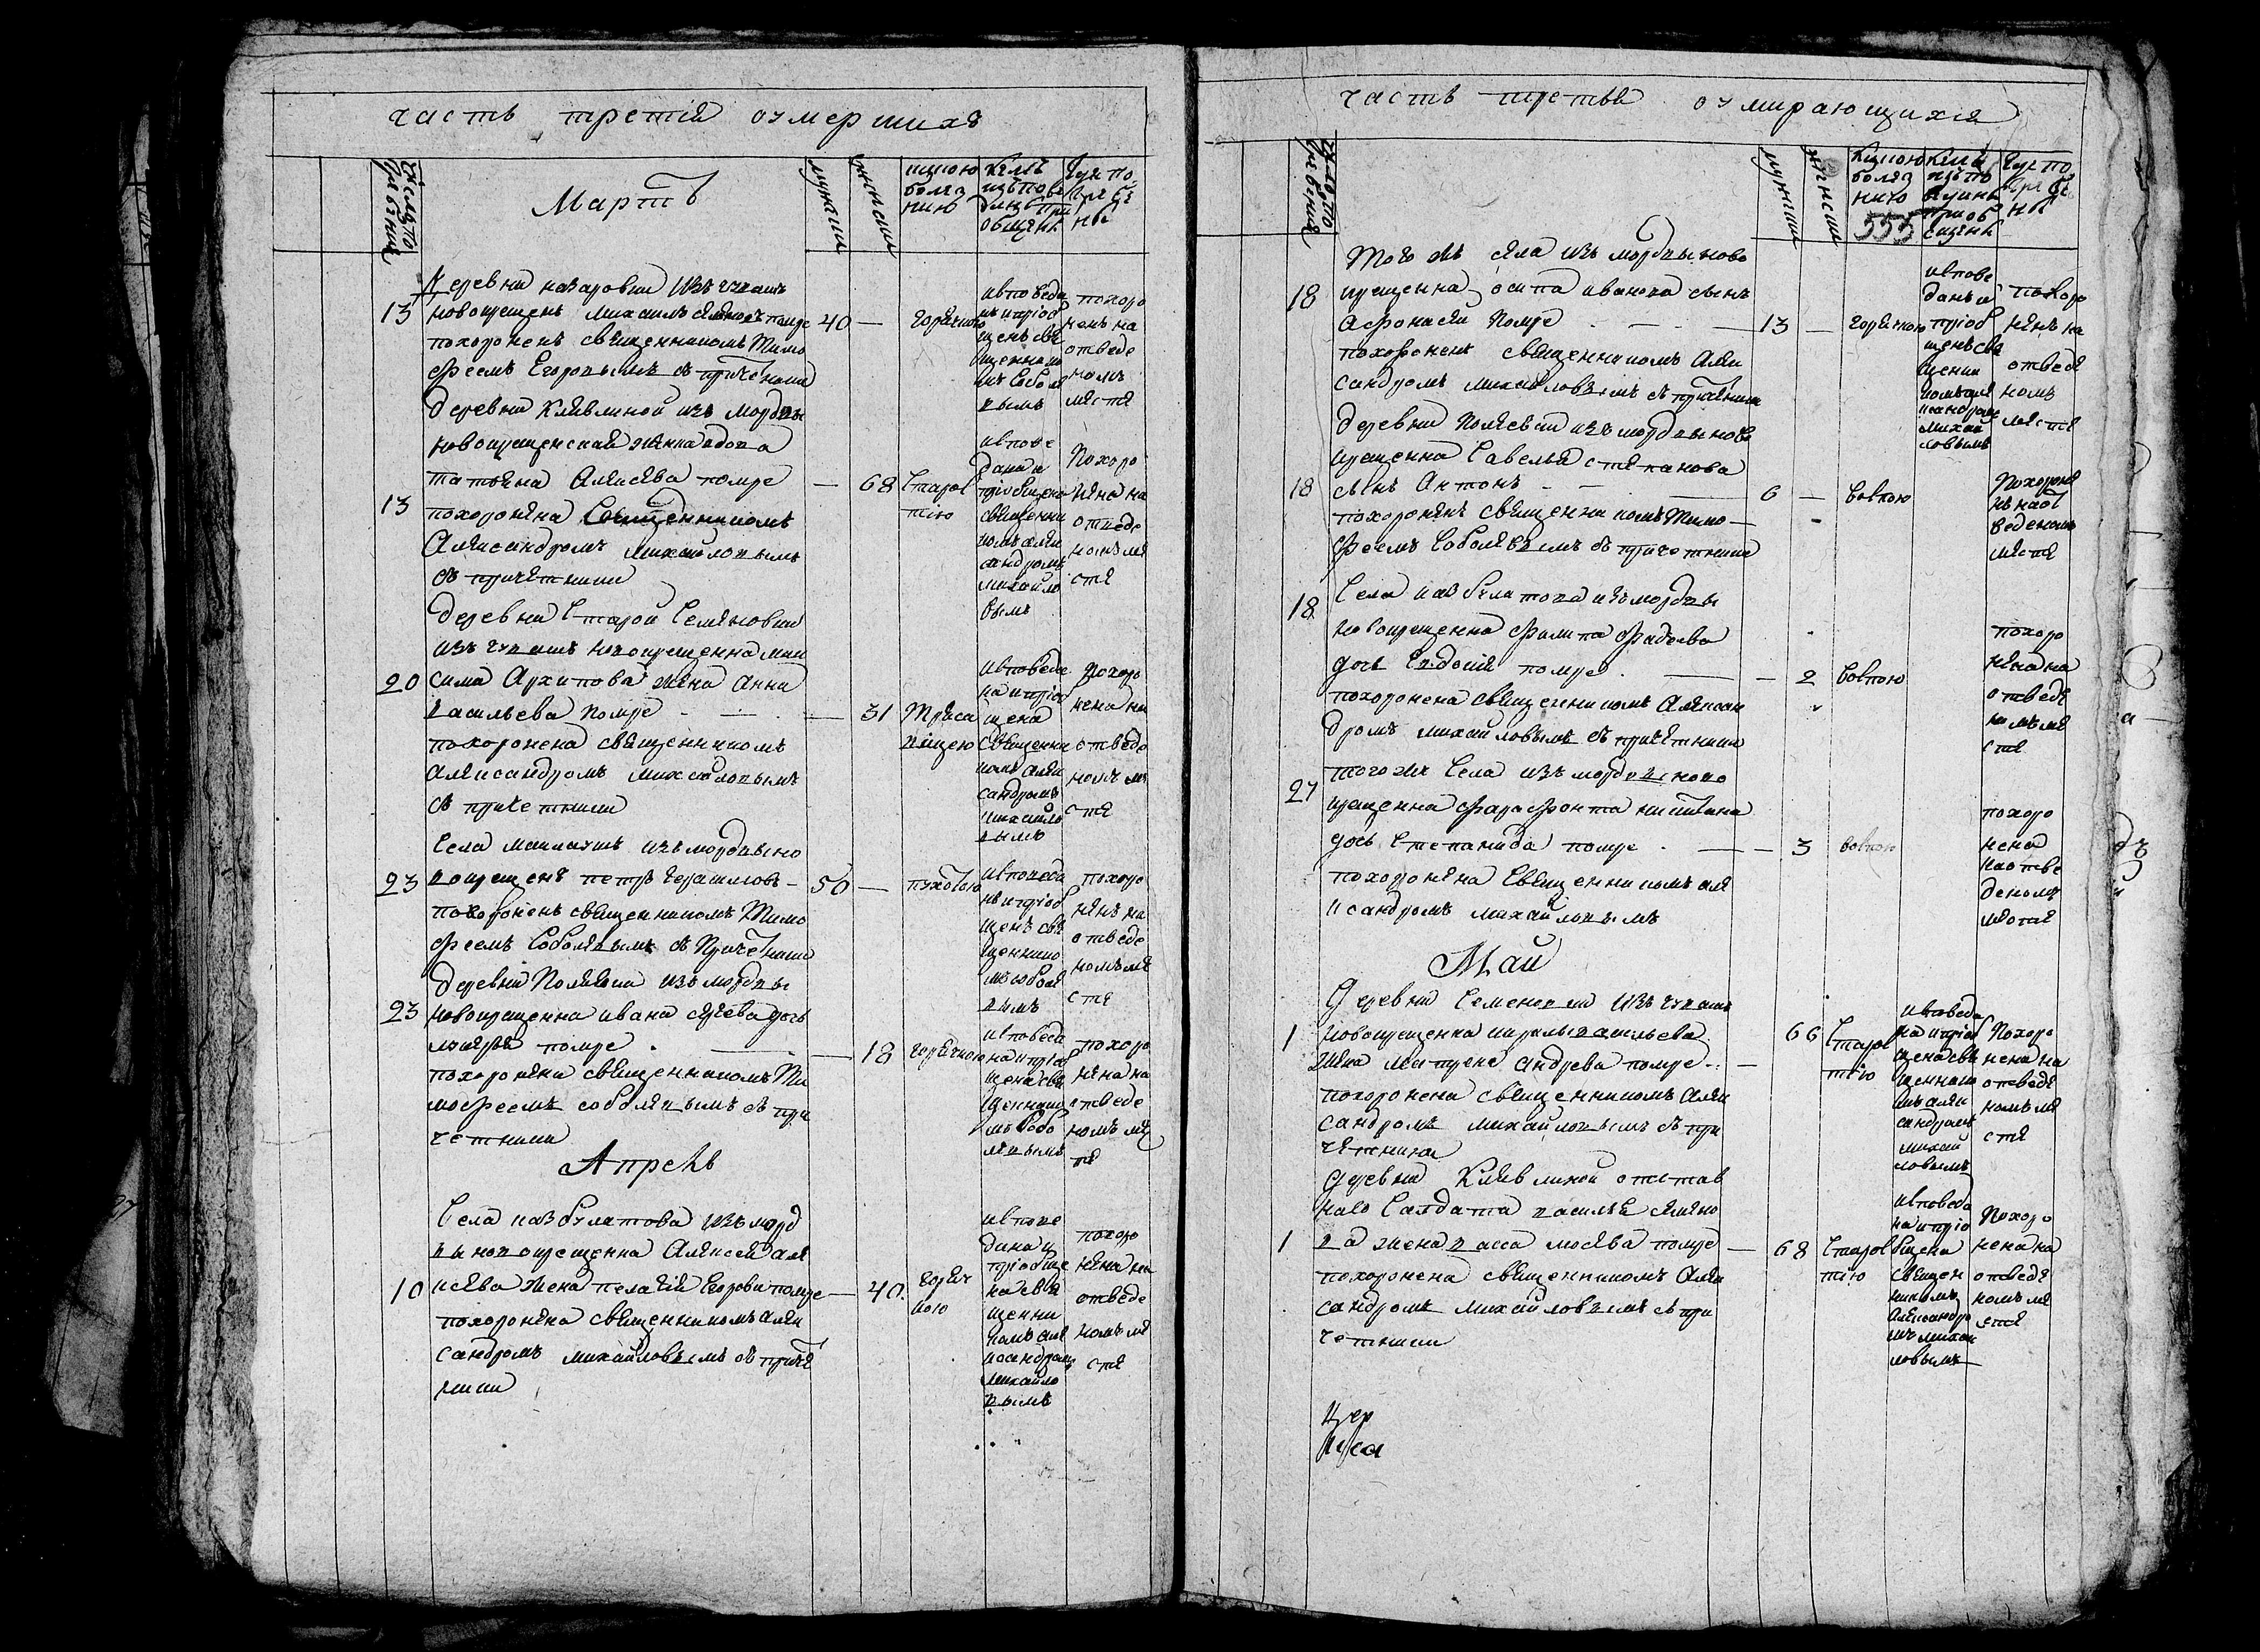 часть третія оумершихъ
Мартъ
число погребения
мужеска
женска
какою болез нию
кемъ исповеданъ и приобщенъ
где погребены
деревни назаровки изъ чувашъ
13 новокрещенъ михаилъ помре 40 — горячкою
похороненъ священникомъ тимо
феемъ Егоровымъ съ причетники
исповеда
нъ и пріоб
щенъ свя
щеннико
мъ Собол
вымъ
похоро
ненъ на
отведе
номъ
месте
деревни Клявлиной изъ мордвы
новокрещенская женка вдова
татьяна Алексеева помре — 68 Старос
тію
13 похоронена Священникомъ
Александромъ михаиловымъ
съ причетники
испове
дана и
пріобщена
священни
комъ алек
сандромъ
михайло
вымъ
Похоро
нена на
отведе
номъ ме
сте
деревни Старой Семеновки
изъ чувашъ новокрещенна мак
20 сима Архипова жена Анна
васильева помре — 31 Тряса
вицею
похоронена священникомъ
александромъ михаиловымъ
съ причетники
исповеда
на и пріоб
щена
священни
комъ алек
сандромъ
михаило
вымъ
Похоро
нена на
отведе
номъ ме
сте
Села изъ мордвы но
23 вокрещенъ петръ герасимовъ — 50 —
похороненъ священникомъ Тимо
феемъ Соболевымъ съ Причетники
исповеда
нъ и пріоб
щенъ свя
щеннико
мъ собол
вымъ
похоро
ненъ на
отведе
номъ ме
сте
деревни изъ мордвы
23 новокрещенна ивана дочь
марья помре — 18 горячкою
похоронена священникомъ Ти
мофеемъ соболевымъ съ при
четники
исповеда
на и пріоб
щена свя
щеннико
мъ Собо
левымъ
похоро
нена на
отведе
номъ мес
те
Апрель
Села назбулатова изъ морд
вы новокрещенна Алексея але
10 ксеева жена пелагія Егорова помре — 40. горяч
кою
похоронена священникомъ алек
сандромъ михайловымъ съ приче
тники
испове
дана и
пріобще
на свя
щенни
комъ але
ксандромъ
михайло
вымъ
похоро
нена на
отведе
номъ ме
сте
часть третья оумирающихся
число погребения
мужеска
женска
Какою
болез
нию
555
кемъ
исповеданъ
приоб
щенъ
где по
гребе
ны
того жъ села изъ мордвы ново
18 крещенна осипа иванова сынъ
Афонасей помре — 13 — горячкою
похороненъ священникомъ Алек
сандромъ михайловымъ съ причетники
испове
данъ и
пріоб
щенъ свя
щенни
комъ але
ксандромъ
михай
ловымъ
похоро
ненъ на
отведе
номъ
месте
деревни изъ мордвы ново
крещенна Савелья степанова
18 сынъ Антонъ — 6 — воспою
похороненъ священникомъ Тимо
феемъ Соболевымъ съ причетники
Похороне
нъ на от
веденомъ
месте
18 Села назбулатова изъ мордвы
новокрещенна филипа фадеева
дочь Евдокія помре — 2 воспою
похоронена священникомъ Алексан
дромъ михайловымъ съ причетники
похоро
нена на
отведе
номъ ме
сте
того жъ Села изъ мордвы ново
27 крещенна никитина
дочь Степанида помре — 3 воспою
похоронена Священникомъ але
ксандромъ михайловымъ
похоро
нена
на отве
деномъ
месте
Май
деревни Семеновки изъ чувашъ
1 новокрещенна кирилы васильева
жена матрена андреева помре — 66 Старос
тію
похоронена священникомъ Алек
сандромъ михайловымъ съ при
четники
исповеда
на и пріоб
щена свя
щеннико
мъ алек
сандромъ
михай
ловымъ
Похоро
нена на
отведе
номъ ме
сте
деревни Клявлиной отстав
наго Салдата василья семено
1 ва жена васса помре — 68 Старос
тію
похоронена священникомъ Алек
сандромъ михайловымъ съ при
четники
исповеда
на и прио
бщена
священ
никомъ
Александро
мъ михай
ловымъ
Похоро
нена на
отведе
номъ ме
сте